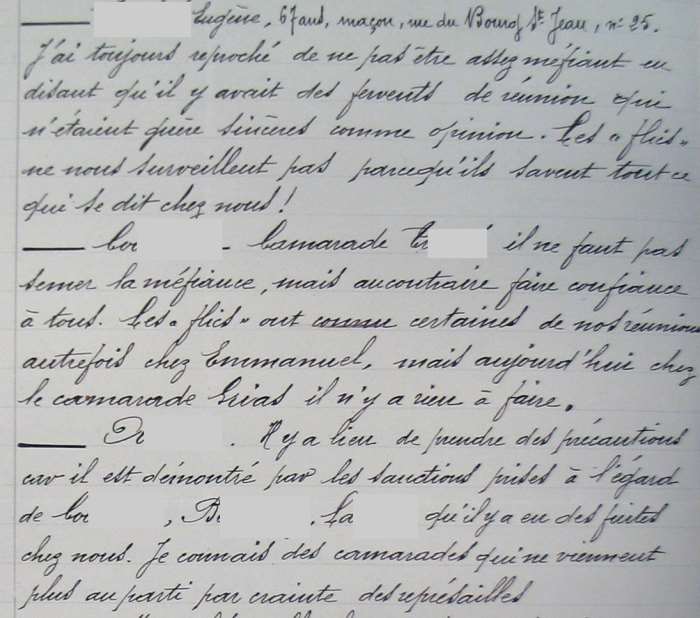 Eugène, 67 ans, maçon, rue du Bourg St Jean, n° 25.
J'ai toujours reproché de ne pas être assez méfiant en
disant qu'il y avait des fervents de réunion qui
n'étaient guère sincères comme opinion. Les "flics"
ne nous surveillent pas parcequ'ils savent tout ce
qui se dit chez nous !
— Cou - Camarade il ne faut pas
semer la méfiance, mais aucontraire faire confiance
à tous. Les "flics" ont connu certaines de nos réunions
autrefois chez Emmanuel, mais aujourd'hui chez
le camarade Grias il n'y a rien à faire.
— . Il y a lieu de prendre des précautions
car il est démontré par les sanctions prises à l'égard
de Cou , , La qu'il y a eu des fuites
chez nous. Je connais des camarades qui ne viennent
plus au parti par crainte des représailles